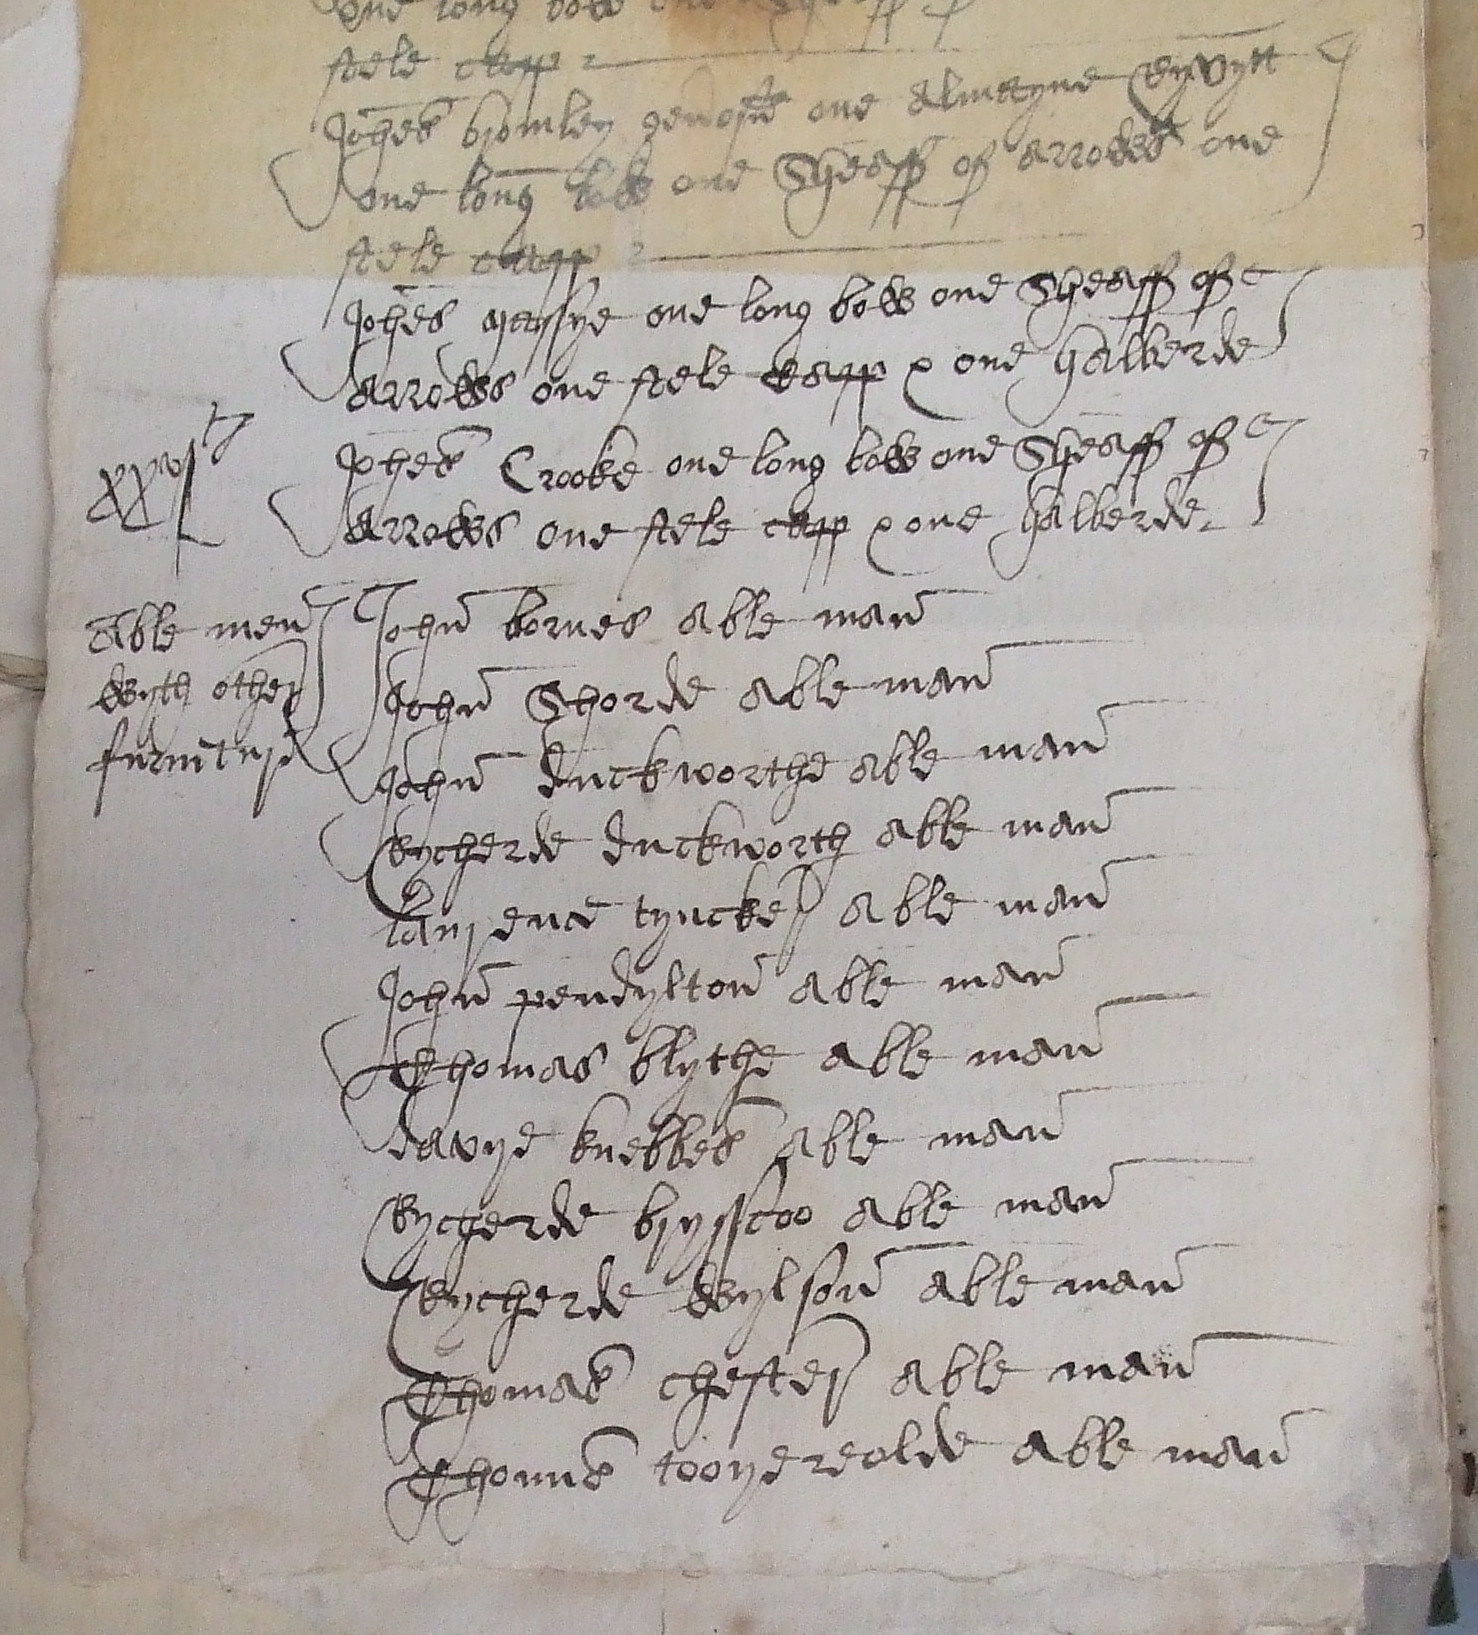 one long bow one Sheaff of
stele capp
Johes bromley generose one Almayne Ryvytt
one long bow one Sheaff of arrowes one
stele capp
Johes massye one long bow one Sheaff of
arrows one stele capp & one halberde
Johes Crooke one long bow one Sheaff of
xxvj
arrows one stele capp & one halberde
able men
wyth other
furniture
John bornes able man
John Shorde able man
John duckworthe able man
Rycherde duckworth able man
laurence tyncker able man
John pendylton able man
Thomas blythe able man
davye knebbes able man
Rycherde bryscoo able man
Rycherde Wylson able man
Thomas chester able man
Thomas able man